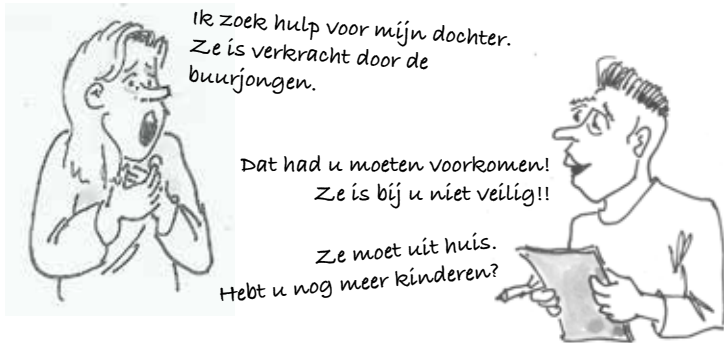 Ik zoek hulp voor mijn dochter.
Ze is verkracht door de
buurjongen.
Dat had u moeten voorkomen!
Ze is bij u niet veilig!!
Ze moet uit huis.
Hebt u nog meer kinderen?